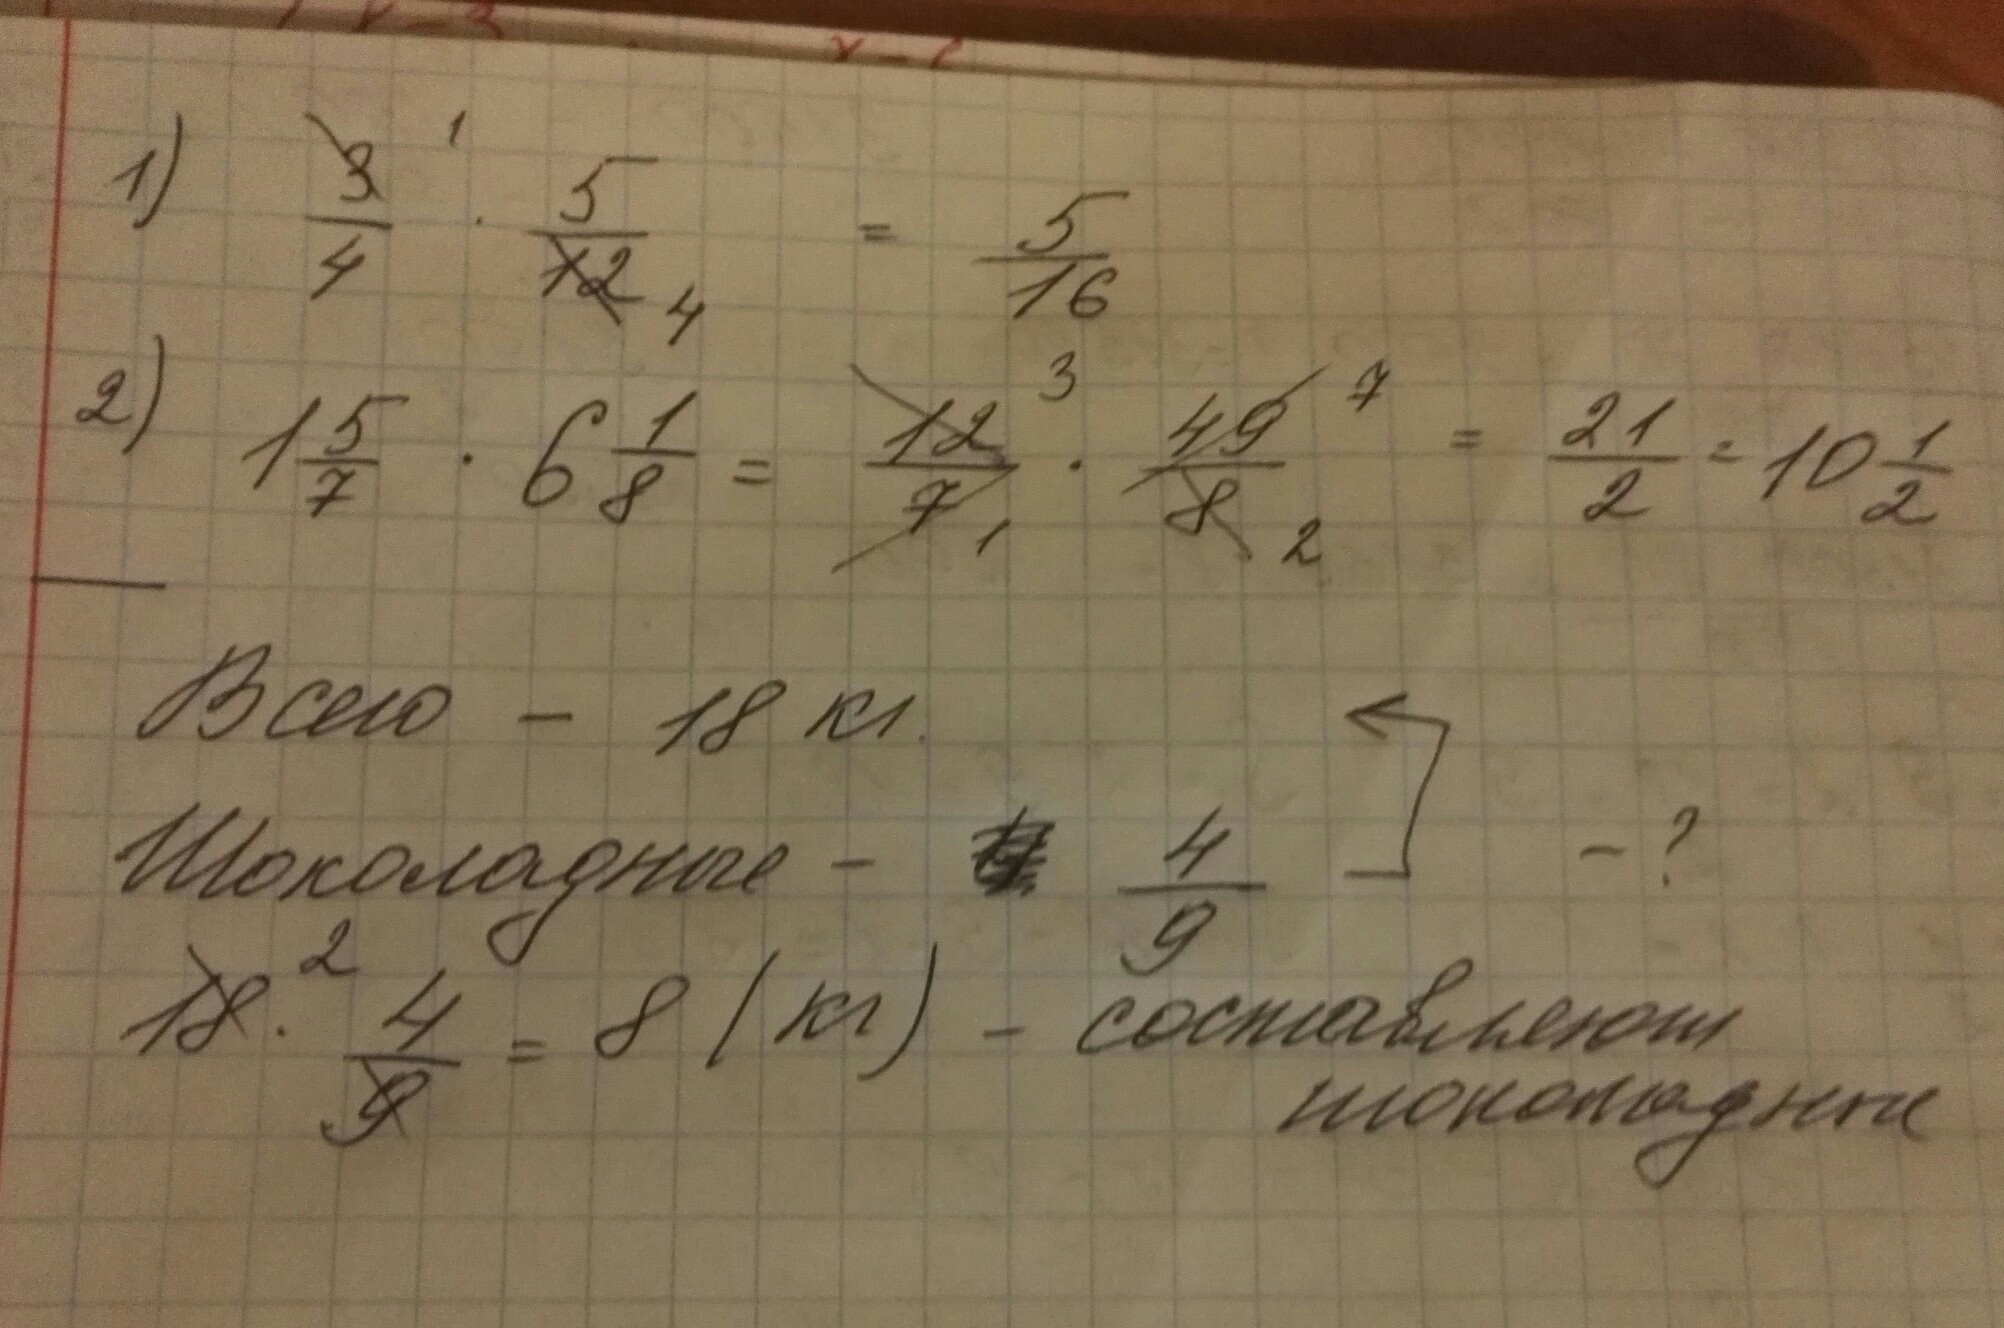 1) 3/4 1 · 5/12 4 = 5/16
2) 1 5/7 · 6 1/8 = 12/7 3 1 · 49/8 7 2 = 21/2 = 10 1/2
Всего - 18 кг.
Шоколадные - 4/9 - ?
18 · 2 4/9 = 8 (кг) - составляют
шоколадные